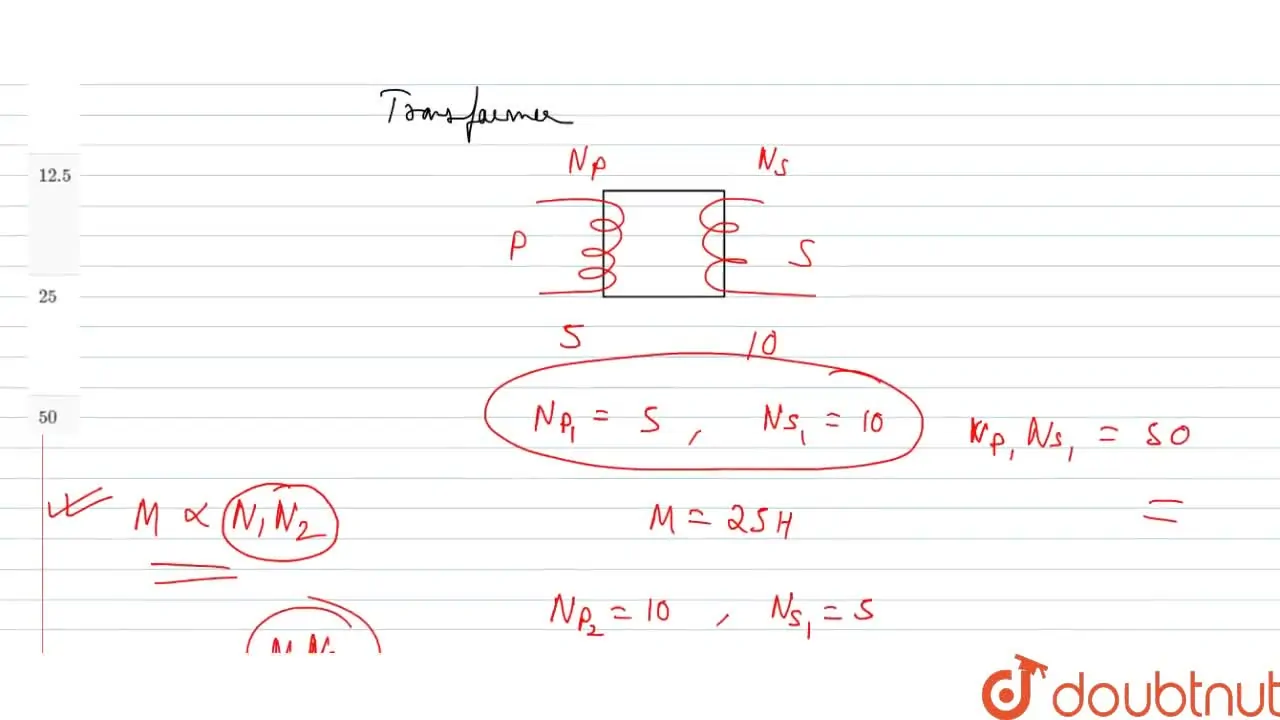 Transformer
Np Ns
12.5
P S
25
5 10
50
Np1 = 5 , Ns1 = 10 Np1 Ns1 = 50
M ∝ N1N2 M = 25H
Np2 = 10 , Ns1 = 5
doubtnut